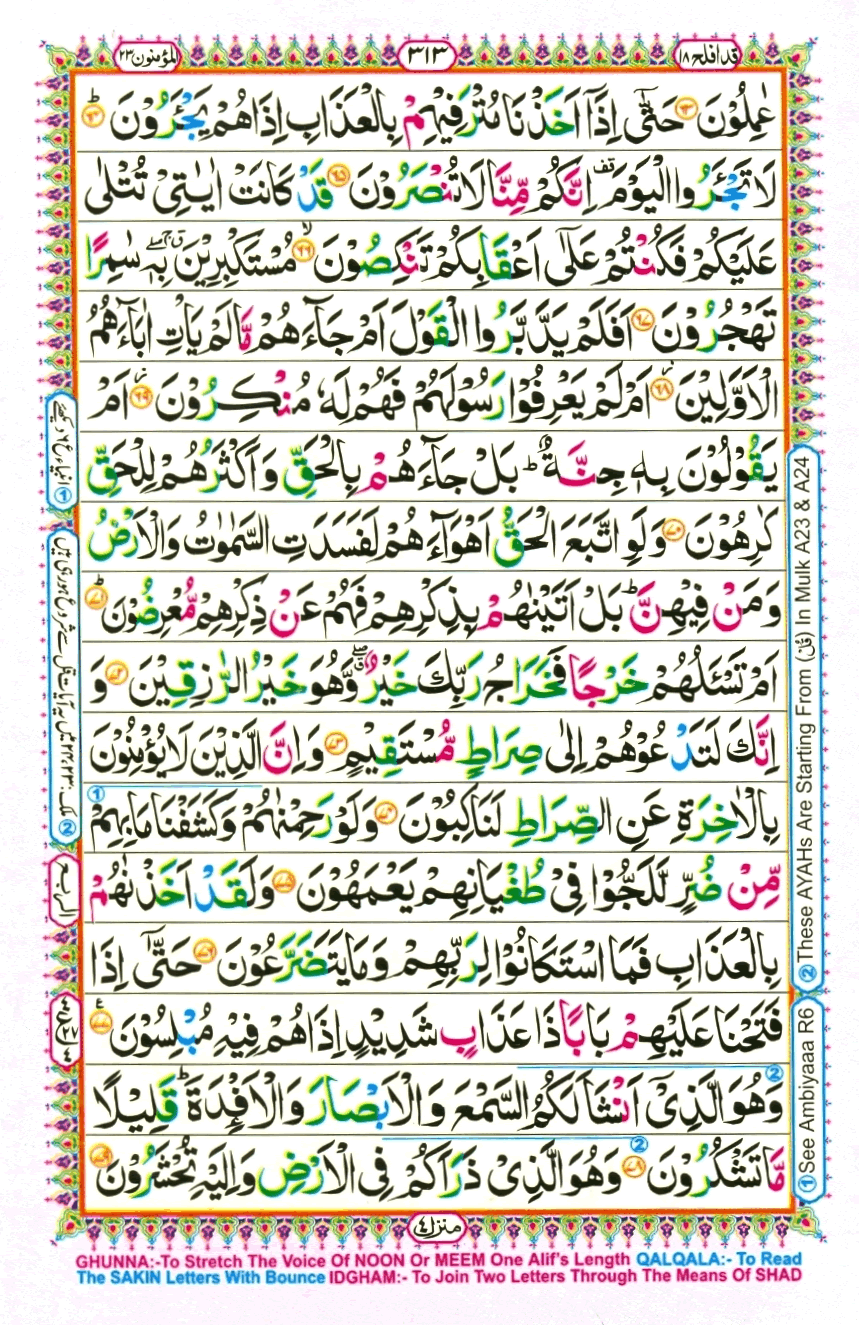 قد افلح ١٨
٣١٣
المؤمنون ٢٣
عٰمِلُوْنَ ۝٦٣ حَتّٰۤى اِذَاۤ اَخَذْنَا مُتْرَفِیْهِمْ بِالْعَذَابِ اِذَا هُمْ یَجْـَٔرُوْنَؕ ۝٦٤
لَا تَجْـَٔرُوا الْیَوْمَ ۫ اِنَّكُمْ مِّنَّا لَا تُنْصَرُوْنَ ۝٦٥ قَدْ كَانَتْ اٰیٰتِیْ تُتْلٰى
عَلَیْكُمْ فَكُنْتُمْ عَلٰۤى اَعْقَابِكُمْ تَنْكِصُوْنَۙ ۝٦٦ مُسْتَكْبِرِیْنَ ۖۗ بِهٖ سٰمِرًا
تَهْجُرُوْنَ ۝٦٧ اَفَلَمْ یَدَّبَّرُوا الْقَوْلَ اَمْ جَآءَهُمْ مَّا لَمْ یَاْتِ اٰبَآءَهُمُ
الْاَوَّلِیْنَؗ ۝٦٨ اَمْ لَمْ یَعْرِفُوْا رَسُوْلَهُمْ فَهُمْ لَهٗ مُنْكِرُوْنَؗ ۝٦٩ اَمْ
یَقُوْلُوْنَ بِهٖ جِنَّةٌؕ بَلْ جَآءَهُمْ بِالْحَقِّ وَاَكْثَرُهُمْ لِلْحَقِّ
كٰرِهُوْنَ ۝٧٠ وَلَوِ اتَّبَعَ الْحَقُّ اَهْوَآءَهُمْ لَفَسَدَتِ السَّمٰوٰتُ وَالْاَرْضُ
وَمَنْ فِیْهِنَّؕ بَلْ اَتَیْنٰهُمْ بِذِكْرِهِمْ فَهُمْ عَنْ ذِكْرِهِمْ مُّعْرِضُوْنَؕ ۝٧١
اَمْ تَسْـَٔلُهُمْ خَرْجًا فَخَرَاجُ رَبِّكَ خَیْرٌ ۖۗ وَّهُوَ خَیْرُ الرّٰزِقِیْنَ ۝٧٢ وَ
اِنَّكَ لَتَدْعُوْهُمْ اِلٰى صِرَاطٍ مُّسْتَقِیْمٍ ۝٧٣ وَاِنَّ الَّذِیْنَ لَا یُؤْمِنُوْنَ
بِالْاٰخِرَةِ عَنِ الصِّرَاطِ لَنَاكِبُوْنَ ۝٧٤ وَلَوْ رَحِمْنٰهُمْ وَكَشَفْنَا مَا بِهِمْ
مِّنْ ضُرٍّ لَّلَجُّوْا فِیْ طُغْیَانِهِمْ یَعْمَهُوْنَ ۝٧٥ وَلَقَدْ اَخَذْنٰهُمْ
بِالْعَذَابِ فَمَا اسْتَكَانُوْا لِرَبِّهِمْ وَمَا یَتَضَرَّعُوْنَ ۝٧٦ حَتّٰۤى اِذَا
فَتَحْنَا عَلَیْهِمْ بَابًا ذَا عَذَابٍ شَدِیْدٍ اِذَا هُمْ فِیْهِ مُبْلِسُوْنَ ۝٧٧ ع
وَهُوَ الَّذِیْۤ اَنْشَاَ لَكُمُ السَّمْعَ وَالْاَبْصَارَ وَالْاَفْـِٕدَةَؕ قَلِیْلًا
مَّا تَشْكُرُوْنَ ۝٧٨ وَهُوَ الَّذِیْ ذَرَاَكُمْ فِی الْاَرْضِ وَاِلَیْهِ تُحْشَرُوْنَ ۝٧٩
② These AYAHs Are Starting From (قُلْ) In Mulk A23 & A24
① See Ambiyaaa R6
① انبیاء، ع ٦ دیکھئے
② ملک: ٢٣، ٢٤ میں یہ آیات قل سے شروع ہو رہی ہیں
الربع
منزل ٤
GHUNNA:-To Stretch The Voice Of NOON Or MEEM One Alif's Length QALQALA:- To Read
The SAKIN Letters With Bounce IDGHAM:- To Join Two Letters Through The Means Of SHAD